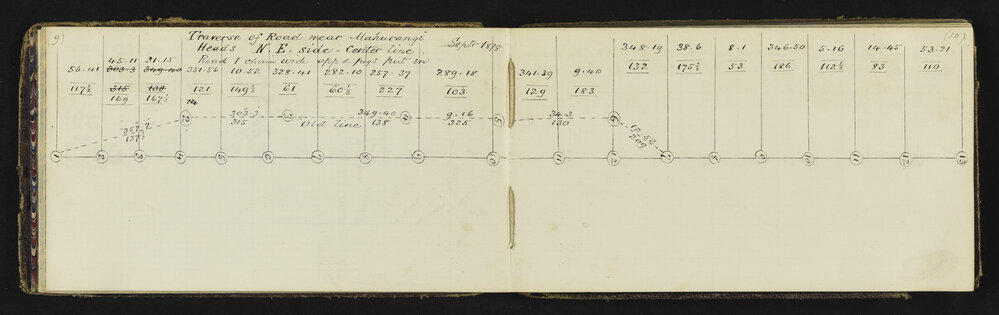 9)
Traverse of Road near Mahurangi
Heads N.E. side - Center line. Septr 1878
Road 1 chain wide opp & pegs put in
(10)
45.11 31.15
56.41 303.3 349.40 351.56 10.52 328.41 282.10 257.37 289.18 341.39 9.40 348.19 38.6 8.1 346.50 5.16 14.45 53.21
117½ 315 138 121 149½ 61 60½ 227 103 129 183 132 175½ 53 186 112½ 83 110
169 167½
② 303.3 ③ 349.40 ④ 9.16 ⑤ 34.3 ⑥
315 Old line 138 325 130
357.7
137½
12.52
209
① ② ③ ④ ⑤ ⑥ ⑦ ⑧ ⑨ ⑩ ⑪ ⑫ ⑦ ⑧ ⑨ ⑩ ⑪ ⑫ ⑬